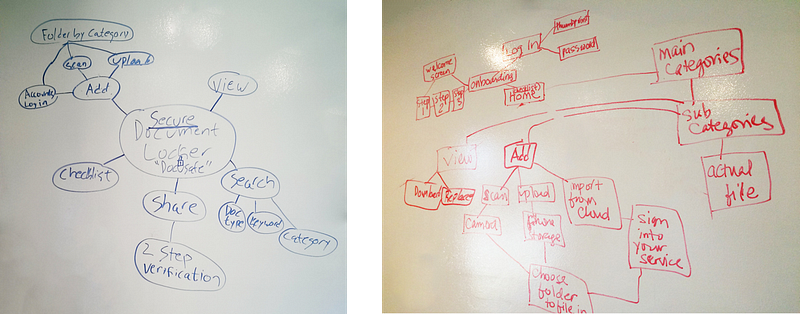 Folder by Category
Scan
upload
Accounts
Log in
Add
View
Secure
Document
Locker
"DocSafe"
Checklist
Search
Share
Doc
type
Keyword
Category
2 Step
verification
thumbprint
Log In
password
welcome
screen
onboarding
Step
1
Step
2
Step
3
Home
main
Categories
Sub
Categories
actual
file
View
Add
Replace
Scan
upload
import
from
Cloud
Camera
phone
storage
sign
into
your
service
Choose
folder
to file in